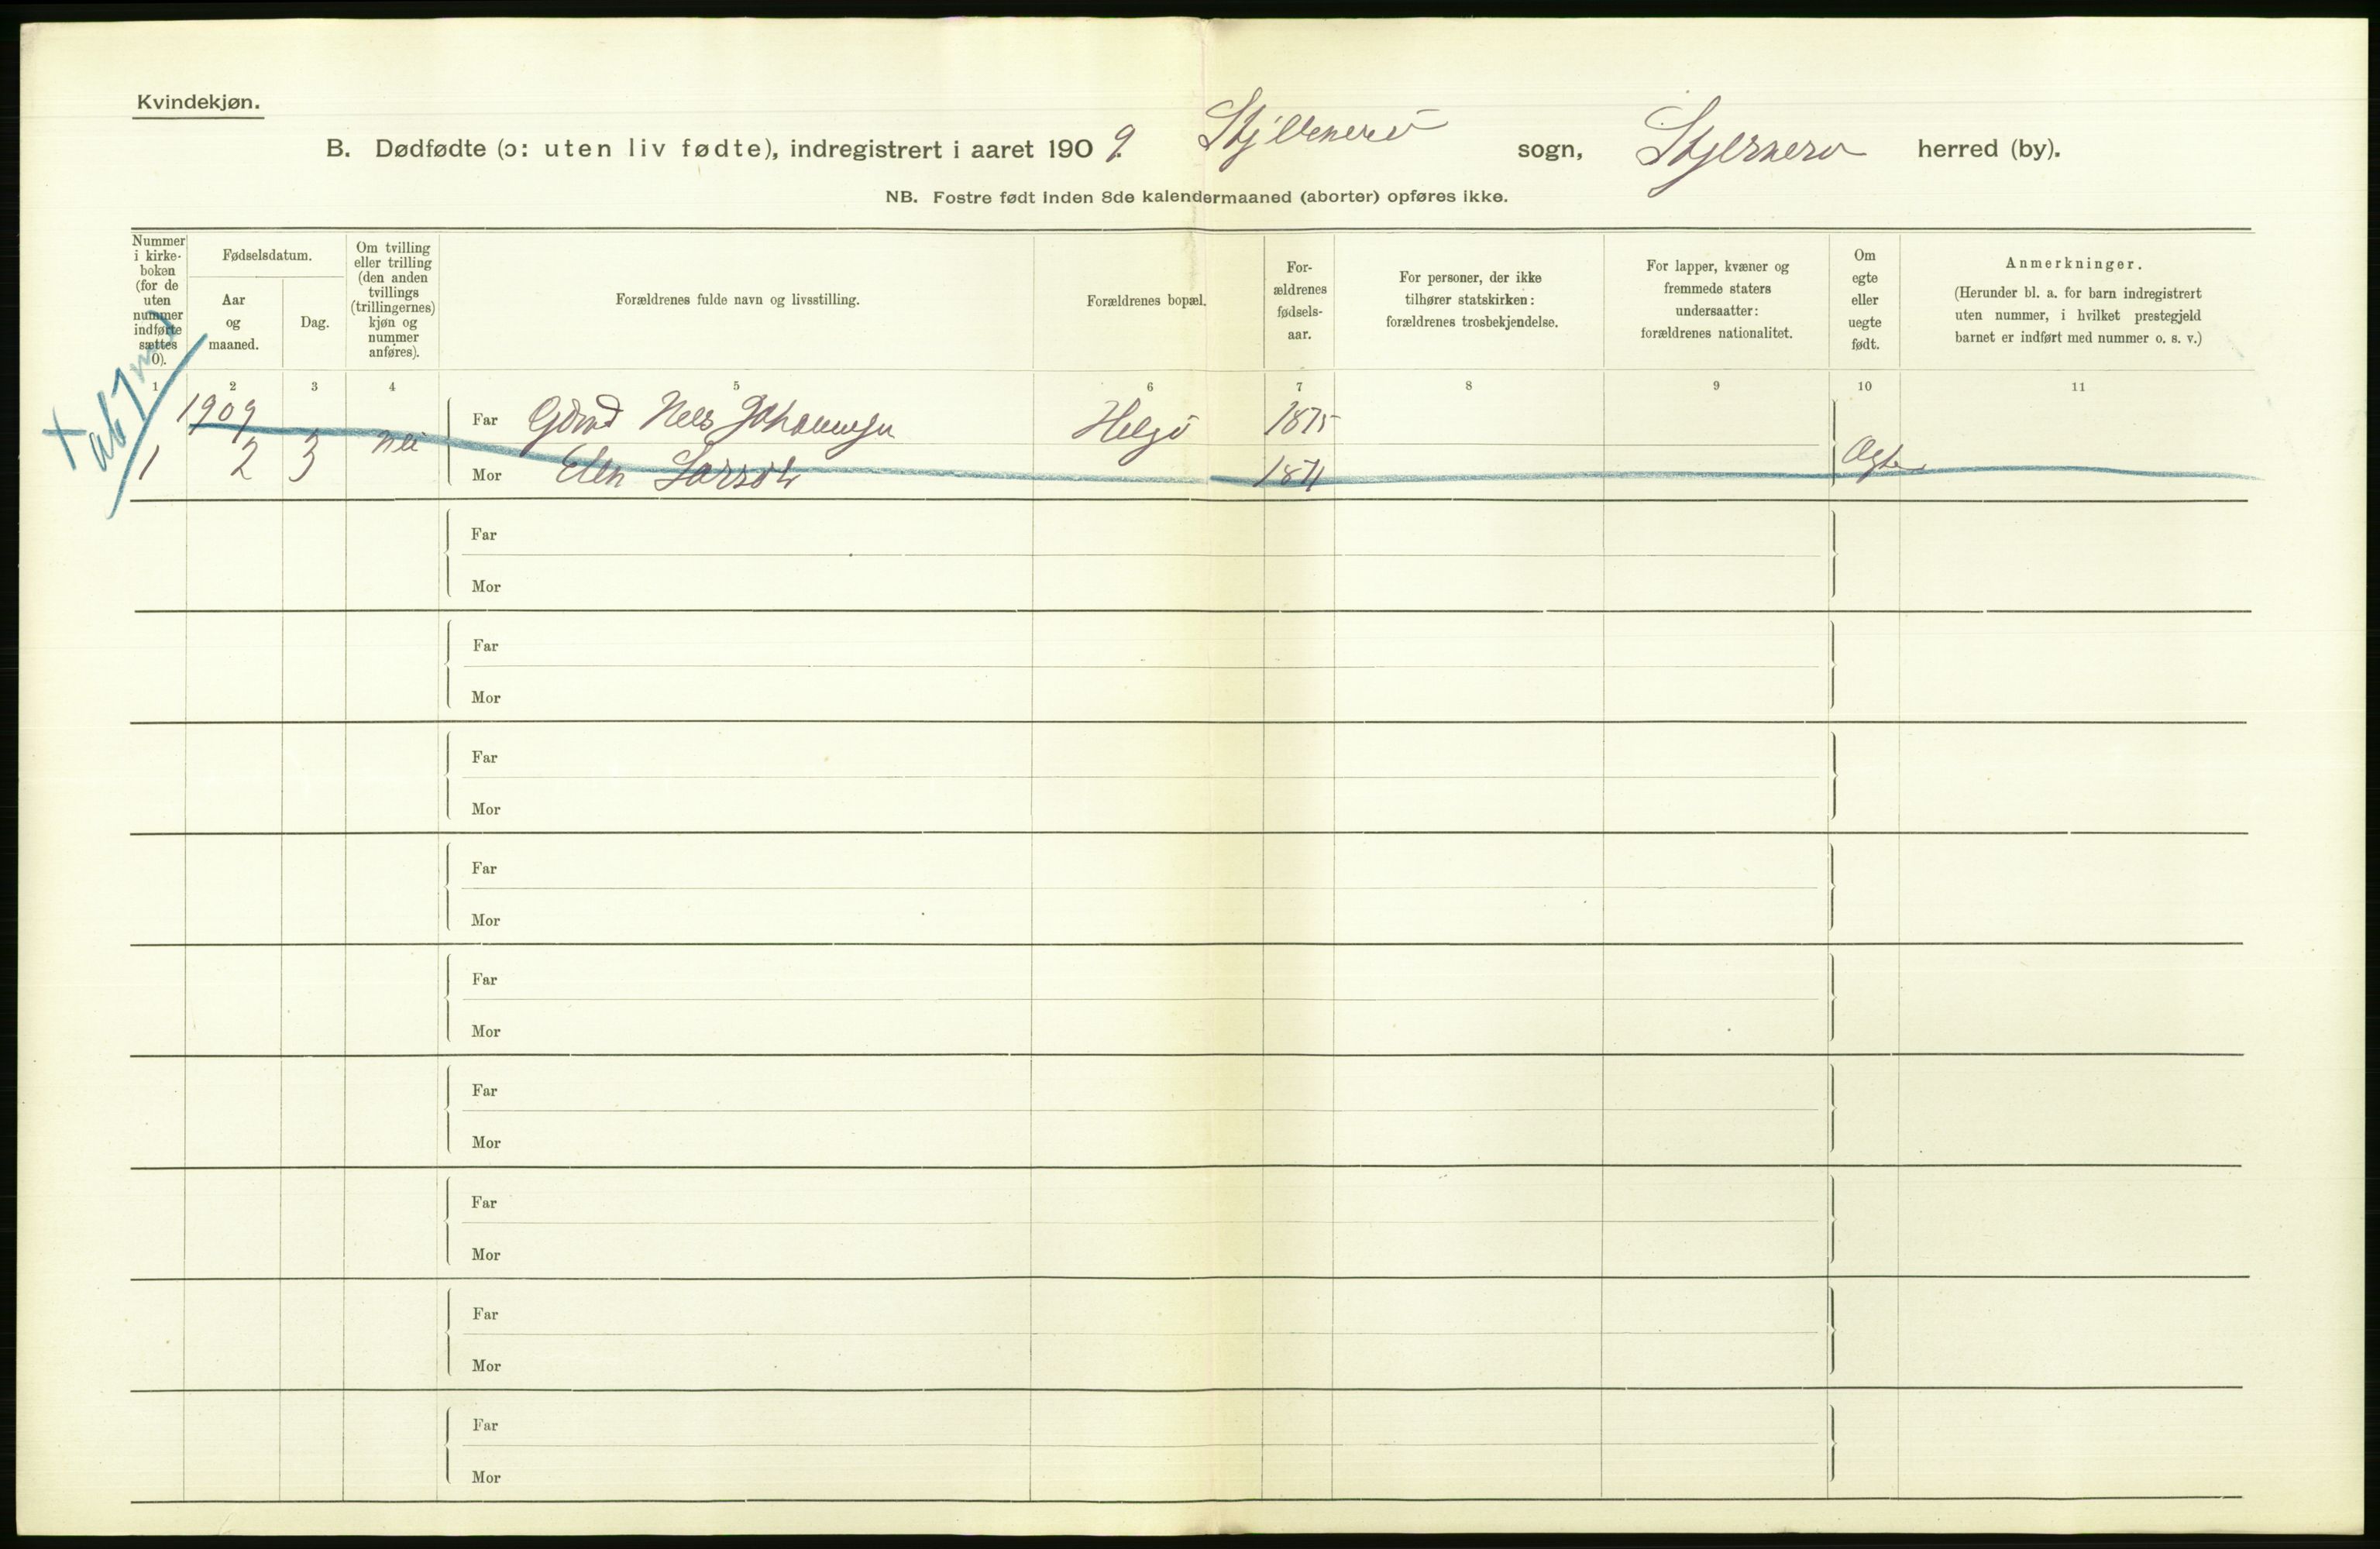 Kvindekjøn.
B. Dødfødte (ɔ: uten liv fødte), indregistrert i aaret 1909. Skjervø sogn, Skjervø herred (by).
NB. Fostre født inden 8de kalendermaaned (aborter) opføres ikke.
Nummer i kirke-boken (for de uten nummer indførte sættes 0).
Fødselsdatum.
Aar og maaned.
Dag.
Om tvilling eller trilling (den anden tvillings (trillingernes) kjøn og nummer anføres).
Forældrenes fulde navn og livsstilling.
Forældrenes bopæl.
For-ældrenes fødsels-aar.
For personer, der ikke tilhører statskirken: forældrenes trosbekjendelse.
For lapper, kvæner og fremmede staters undersaatter: forældrenes nationalitet.
Om egte eller uegte født.
Anmerkninger.
(Herunder bl. a. for barn indregistrert uten nummer, i hvilket prestegjeld barnet er indført med nummer o. s. v.)
1 2 3 4 5 6 7 8 9 10 11
1909 Far Nels Johannesen Helgø 1875
1 2 3 Nei Mor Elen 1871 Ægte
Far
Mor
Far
Mor
Far
Mor
Far
Mor
Far
Mor
Far
Mor
Far
Mor
Far
Mor
Far
Mor